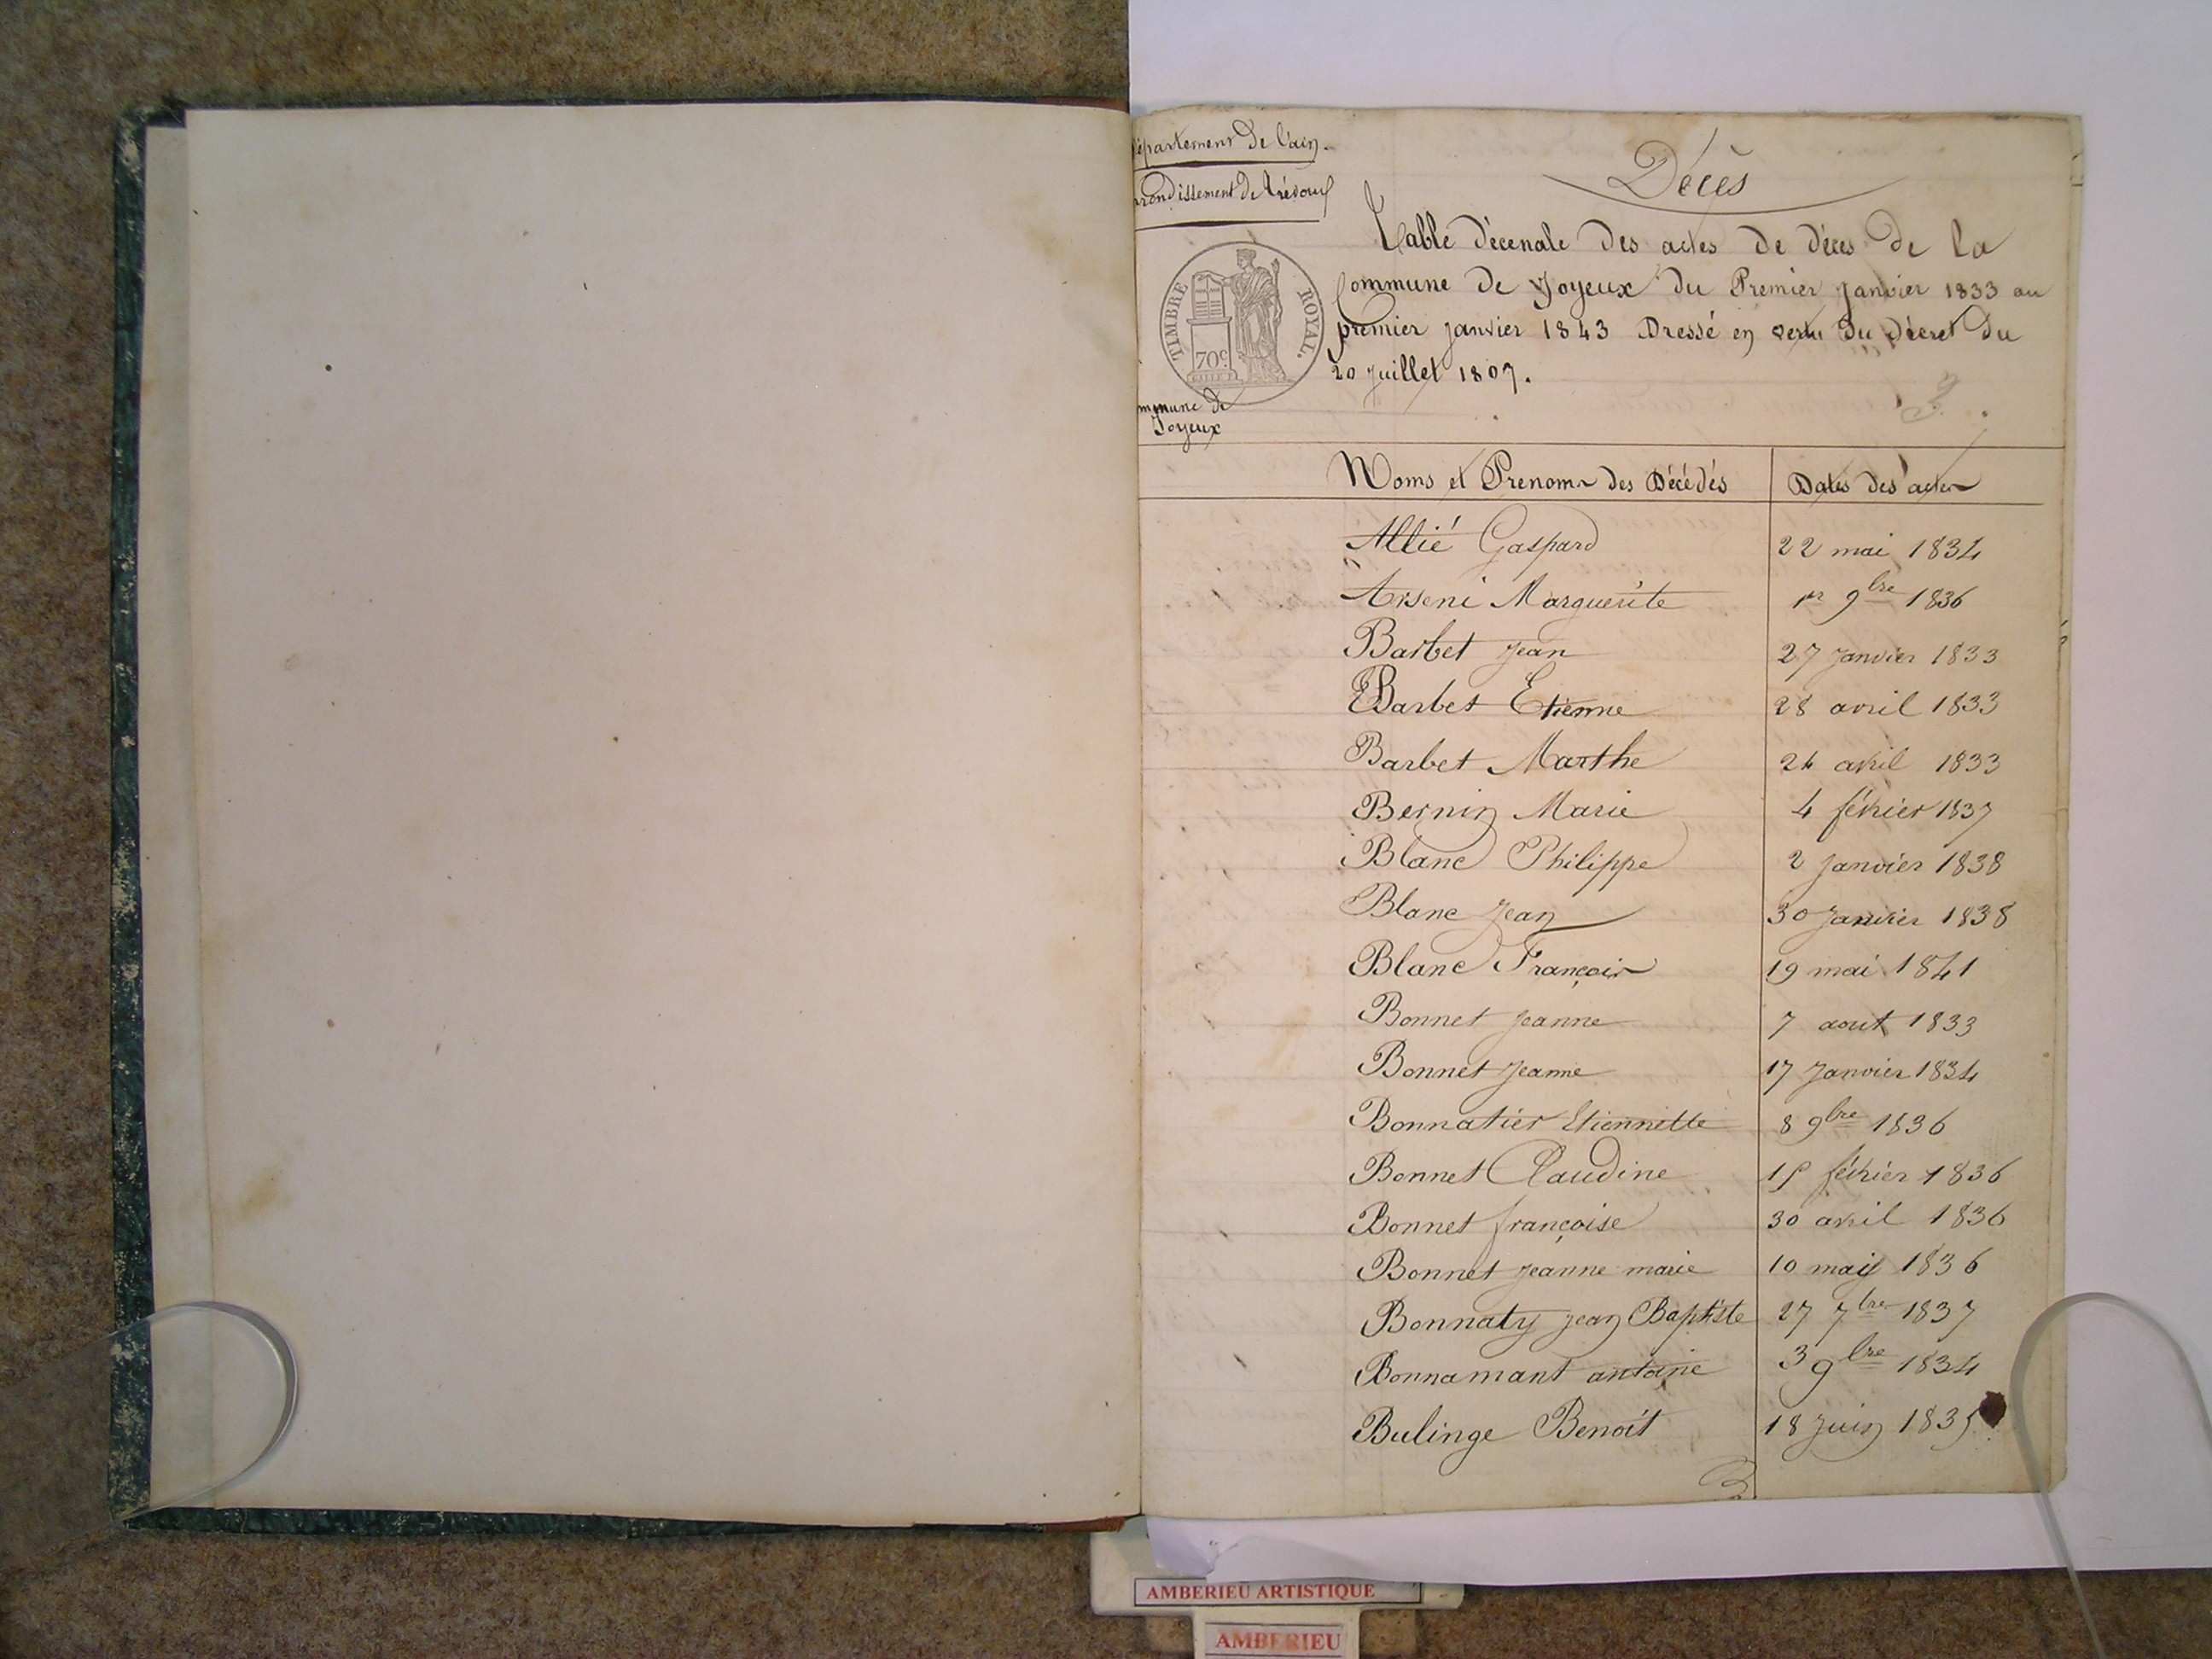 épartement De l'ain.
rrondissement De trévoux
Décès
Table décenale Des actes De Déces De la
Commune De Joyeux Du Premier Janvier 1833 au
premier janvier 1843 Dressé en vertu Du Décret Du
20 Juillet 1807.
TIMBRE ROYAL.
70c
mmune de
Joyeux
3
Noms et Prenoms des Décédés Dates des actes
Allié Gaspard 22 mai 1834
Arseni Marguerite 1er 9bre 1836
Barbet Jean 27 Janvier 1833
Barbet Etienne 28 avril 1833
Barbet Marthe 24 avril 1833
Bernin Marie 4 février 1837
Blanc Philippe 2 Janvier 1838
Blanc Jean 30 Janvier 1838
Blanc François 19 mai 1841
Bonnet Jeanne 7 aout 1833
Bonnet Jeanne 17 Janvier 1834
Bonnatier Etiennette 8 9bre 1836
Bonnet Claudine 15 février 1836
Bonnet françoise 30 avril 1836
Bonnet jeanne marie 10 mai 1836
Bonnaty jean Baptiste 27 7bre 1837
Bonnamant antoine 3 9bre 1834
Bulinge Benoit 18 Juin 1835
AMBERIEU ARTISTIQUE
AMBERIEU